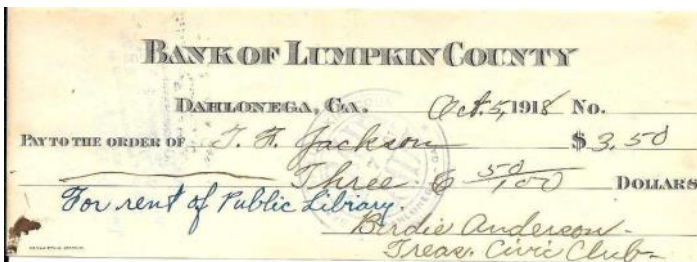 BANK OF LUMPKIN COUNTY
DAHLONEGA, GA. Oct. 5, 1918 No.
PAY TO THE ORDER OF T. F. Jackson $ 3.50
Three & 50/100 DOLLARS
For rent of Public Library.
Birdie Anderson
Treas. Civic Club